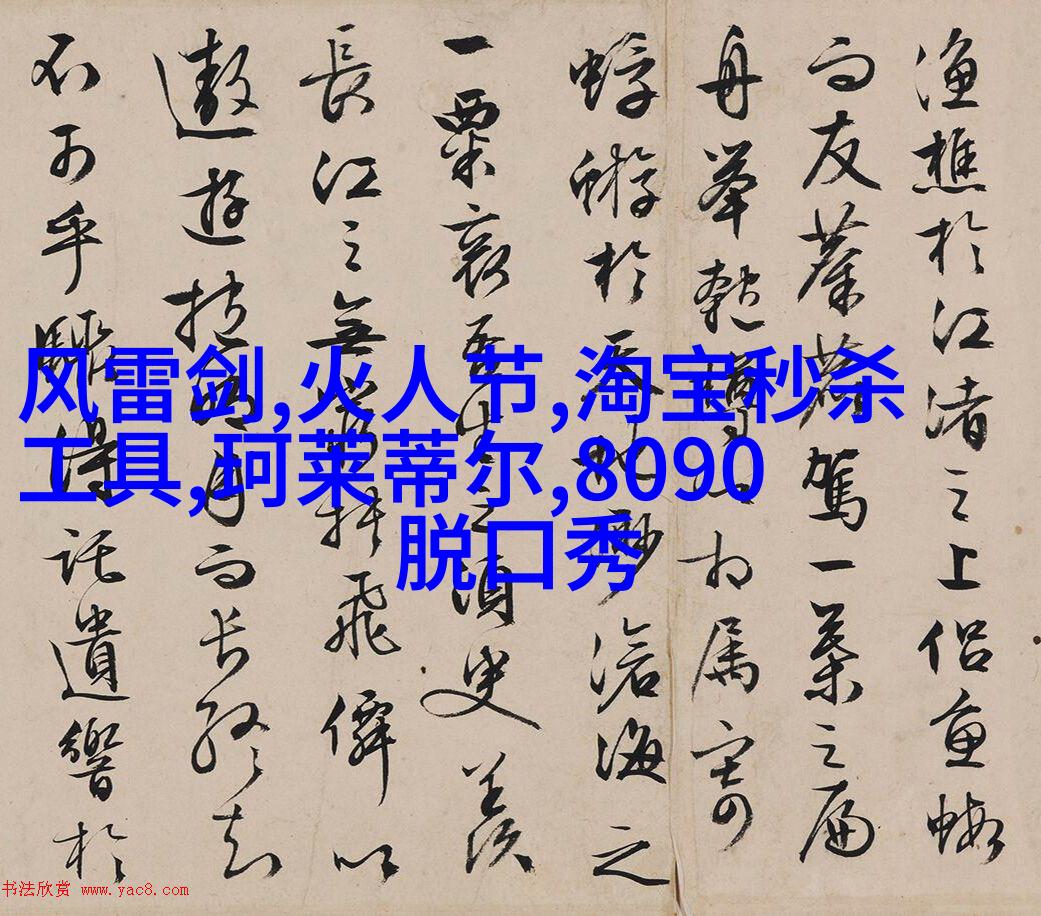 漁樵於江渚之上侣魚蝦
而友麋鹿駕一葉之扁
舟舉匏樽以相属寄
蜉蝣於天地渺滄海之
一粟哀吾生之須臾羨
長江之無窮挟飛僊以
遨遊抱明月而长終知
不可乎驟得託遺響於
风雷剑,火人节,淘宝秒杀
工具,珂莱蒂尔,8090
脱口秀
书法欣赏 www.yac8.com